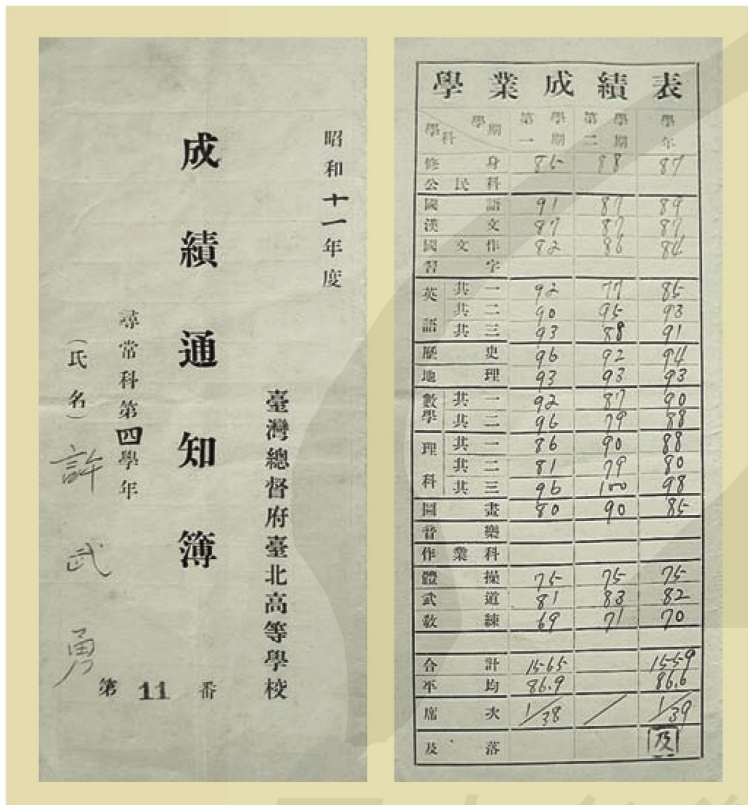 昭和十一年度
臺灣總督府臺北高等學校
成績通知簿
尋常科第四學年
(氏名) 許武勇
第 11 番
學業成績表
學科 學期 第一學期 第二學期 學年
修身 85 88 87
公民科
國語 91 87 89
漢文 87 87 87
國文作 82 86 84
習字
英語 其一 92 77 85
其二 90 95 93
其三 93 88 91
歷史 96 92 94
地理 93 93 93
數學 其一 92 87 90
其二 96 79 88
理科 其一 86 90 88
其二 81 79 80
其三 96 100 98
圖畫 80 90 85
音樂
作業科
體操 75 75 75
武道 81 83 82
敎練 69 71 70
合計 1565 1559
平均 86.9 86.6
席次 1/38 / 1/39
及落 及